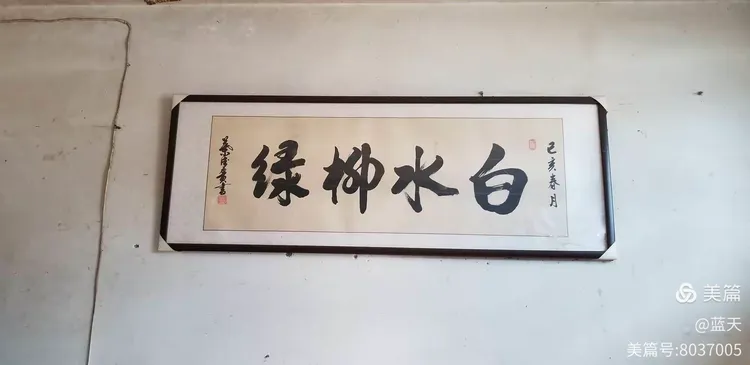 己亥春月
白水柳绿
美篇
@蓝天
美篇号:8037005